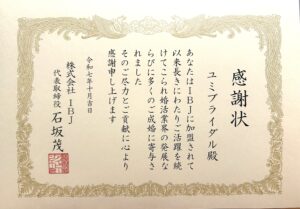 感謝状
ユミブライダル殿
あなたはIBJに加盟されて
以来長きにわたりご活躍を続
けてこられ婚活業界の発展な
らびに多くのご成婚に寄与さ
れました
そのご尽力とご貢献に心より
感謝申し上げます
令和七年十月吉日
株式会社IBJ
代表取締役 石坂茂